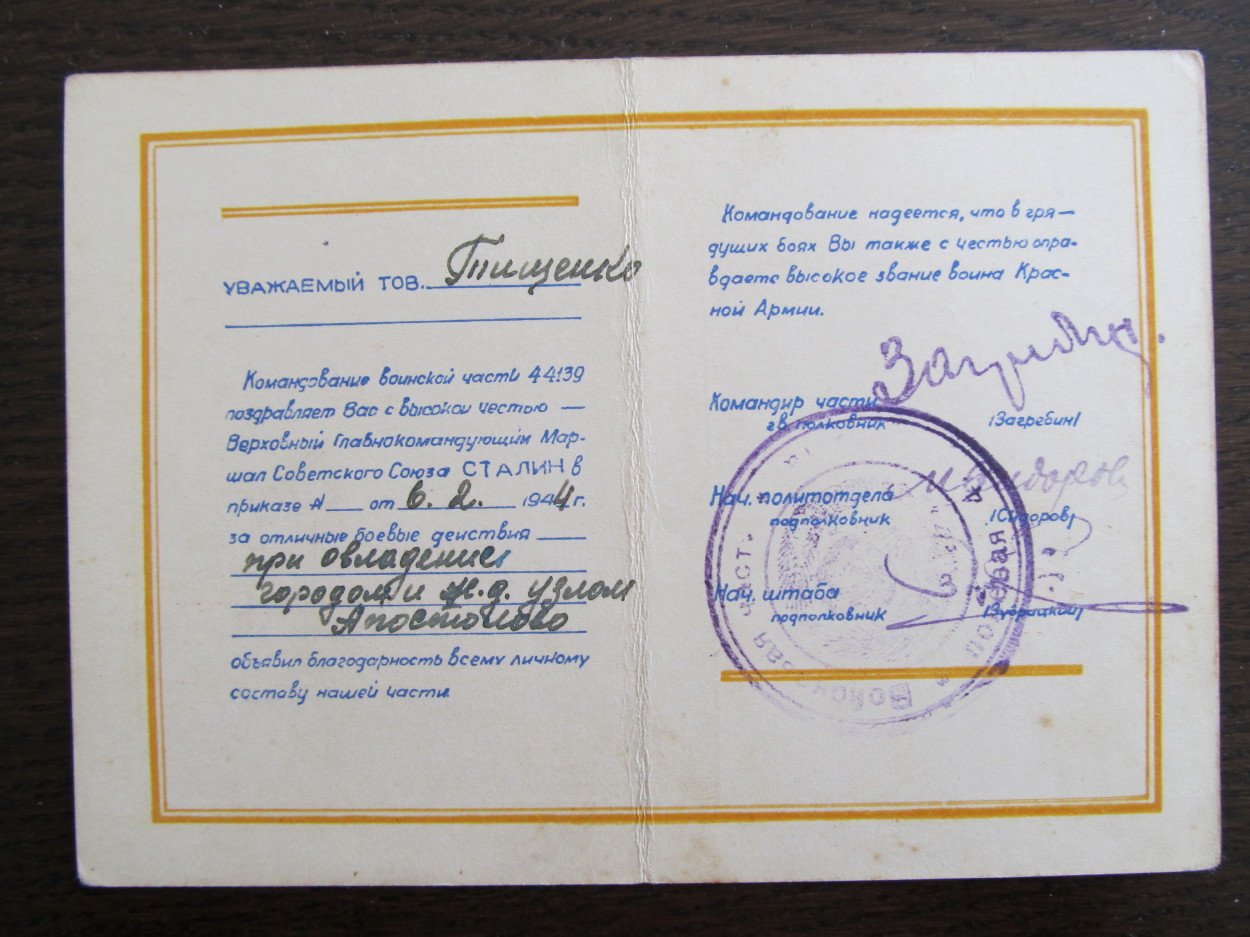 УВАЖАЕМЫЙ ТОВ. Тищенко
Командование воинской части 44139
поздравляет Вас с высокой честью —
Верховный Главнокомандующий Мар-
шал Советского Союза СТАЛИН в
приказе № от 6. 2. 1944 г.
за отличные боевые действия
при овладение
городом и ж.д. узлом
Апостолово
объявил благодарность всему личному
составу нашей части.
Командование надеется, что в гря—
дущих боях Вы также с честью опра-
вдаете высокое звание воина Крас-
ной Армии.
Командир части
гв. полковник /Загребин/
Нач. политотдела
подполковник /Сидоров/
Нач. штаба
подполковник
Войсковая часть полевая